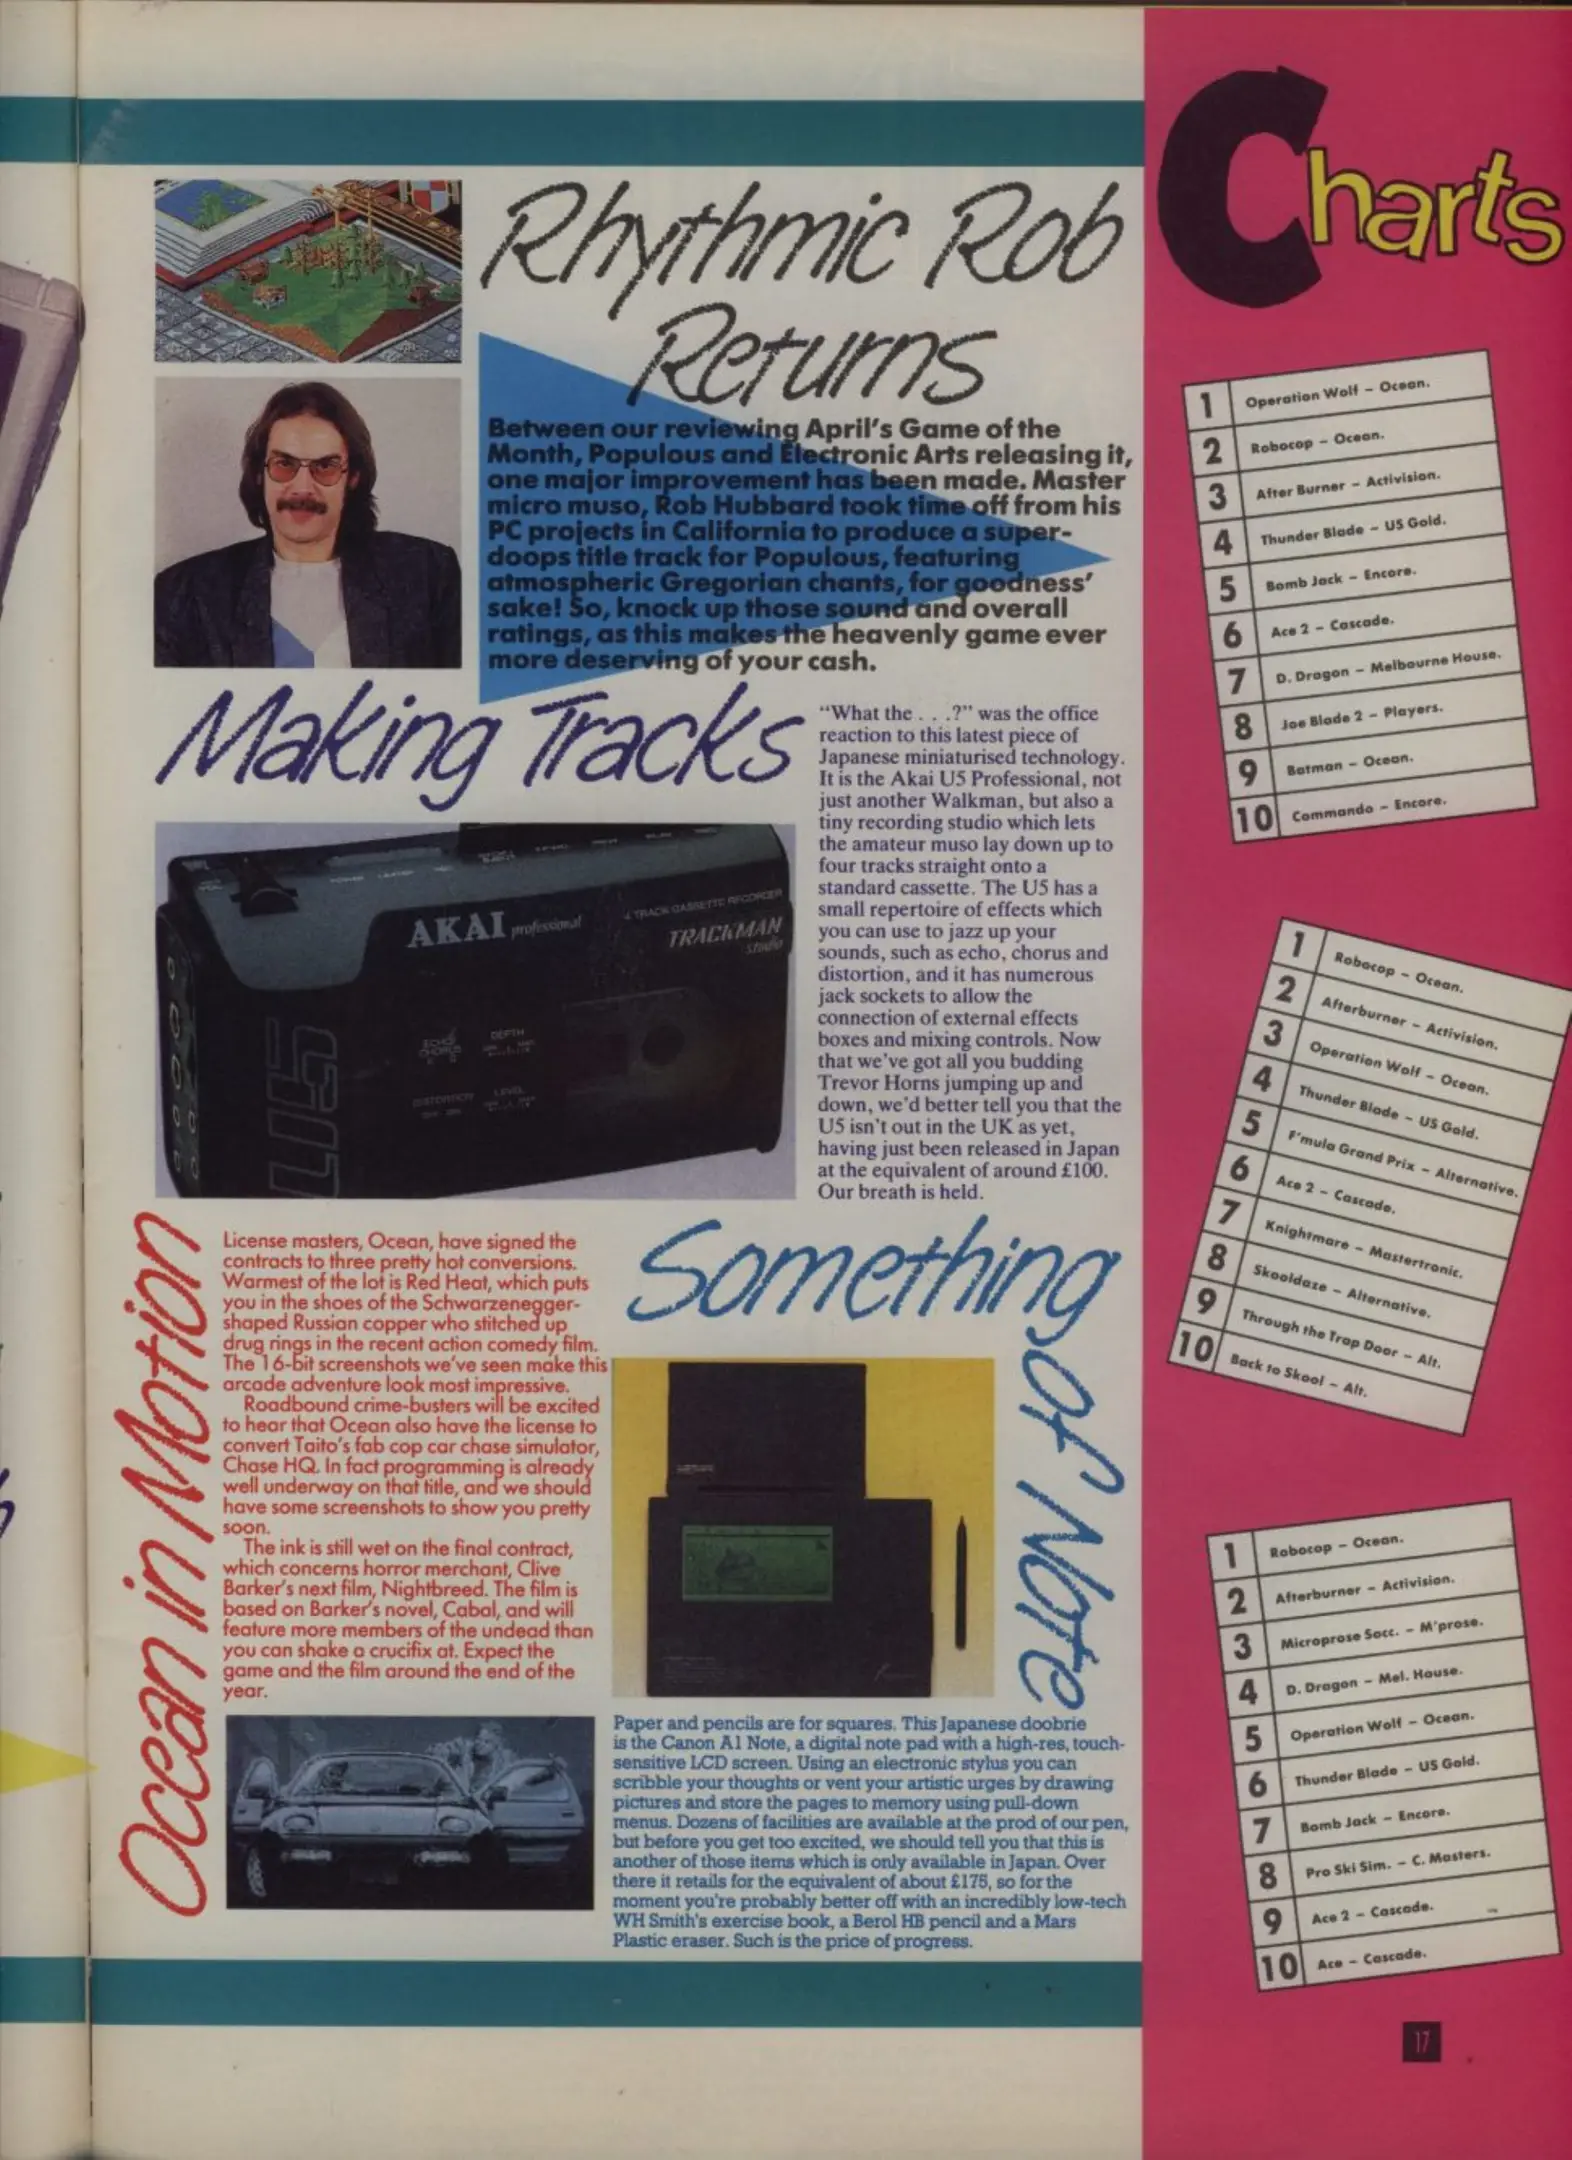 Rhythmic Rob
Returns
Between our reviewing April's Game of the
Month, Populous and Electronic Arts releasing it,
one major improvement has been made. Master
micro muso, Rob Hubbard took time off from his
PC projects in California to produce a super-
doops title track for Populous, featuring
atmospheric Gregorian chants, for goodness'
sake! So, knock up those sound and overall
ratings, as this makes the heavenly game ever
more deserving of your cash.
Making Tracks
"What the . . .?" was the office
reaction to this latest piece of
Japanese miniaturised technology.
It is the Akai U5 Professional, not
just another Walkman, but also a
tiny recording studio which lets
the amateur muso lay down up to
four tracks straight onto a
standard cassette. The U5 has a
small repertoire of effects which
you can use to jazz up your
sounds, such as echo, chorus and
distortion, and it has numerous
jack sockets to allow the
connection of external effects
boxes and mixing controls. Now
that we've got all you budding
Trevor Horns jumping up and
down, we'd better tell you that the
U5 isn't out in the UK as yet,
having just been released in Japan
at the equivalent of around £100.
Our breath is held.
AKAI professional
4 TRACK CASSETTE RECORDER
TRACKMAN
studio
U5
ECHO
CHORUS
DEPTH
DISTORTION
LEVEL
Ocean in Motion
License masters, Ocean, have signed the
contracts to three pretty hot conversions.
Warmest of the lot is Red Heat, which puts
you in the shoes of the Schwarzenegger-
shaped Russian copper who stitched up
drug rings in the recent action comedy film.
The 16-bit screenshots we've seen make this
arcade adventure look most impressive.
Roadbound crime-busters will be excited
to hear that Ocean also have the license to
convert Taito's fab cop car chase simulator,
Chase HQ. In fact programming is already
well underway on that title, and we should
have some screenshots to show you pretty
soon.
The ink is still wet on the final contract,
which concerns horror merchant, Clive
Barker's next film, Nightbreed. The film is
based on Barker's novel, Cabal, and will
feature more members of the undead than
you can shake a crucifix at. Expect the
game and the film around the end of the
year.
Something
of Note
Paper and pencils are for squares. This Japanese doobrie
is the Canon A1 Note, a digital note pad with a high-res, touch-
sensitive LCD screen. Using an electronic stylus you can
scribble your thoughts or vent your artistic urges by drawing
pictures and store the pages to memory using pull-down
menus. Dozens of facilities are available at the prod of our pen,
but before you get too excited, we should tell you that this is
another of those items which is only available in Japan. Over
there it retails for the equivalent of about £175, so for the
moment you're probably better off with an incredibly low-tech
WH Smith's exercise book, a Berol HB pencil and a Mars
Plastic eraser. Such is the price of progress.
Charts
1 Operation Wolf – Ocean.
2 Robocop – Ocean.
3 After Burner – Activision.
4 Thunder Blade – US Gold.
5 Bomb Jack – Encore.
6 Ace 2 – Cascade.
7 D. Dragon – Melbourne House.
8 Joe Blade 2 – Players.
9 Batman – Ocean.
10 Commando – Encore.
1 Robocop – Ocean.
2 Afterburner – Activision.
3 Operation Wolf – Ocean.
4 Thunder Blade – US Gold.
5 F'mula Grand Prix – Alternative.
6 Ace 2 – Cascade.
7 Knightmare – Mastertronic.
8 Skooldaze – Alternative.
9 Through the Trap Door – Alt.
10 Back to Skool – Alt.
1 Robocop – Ocean.
2 Afterburner – Activision.
3 Microprose Socc. – M'prose.
4 D. Dragon – Mel. House.
5 Operation Wolf – Ocean.
6 Thunder Blade – US Gold.
7 Bomb Jack – Encore.
8 Pro Ski Sim. – C. Masters.
9 Ace 2 – Cascade.
10 Ace – Cascade.
17